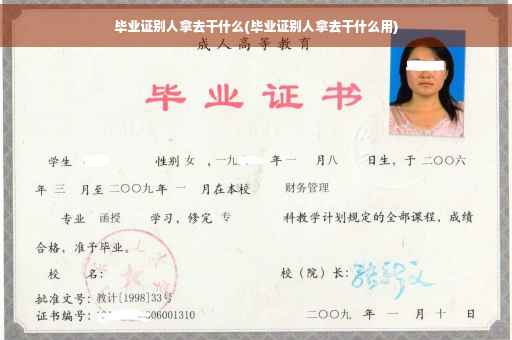 毕业证别人拿去干什么(毕业证别人拿去干什么用)
成人高等教育
毕业证书
学生 性别 女 ，一九 年 一 月 八 日生，于 二〇〇六
年 三 月至 二〇〇九 年 一 月在本校 财务管理
专业 函授 学习，修完 专 科教学计划规定的全部课程，成绩
合格，准予毕业。
校 名： 校（院）长：
批准文号：教计[1998]33号
证书编号： 06001310 二〇〇九 年 一 月 十 日